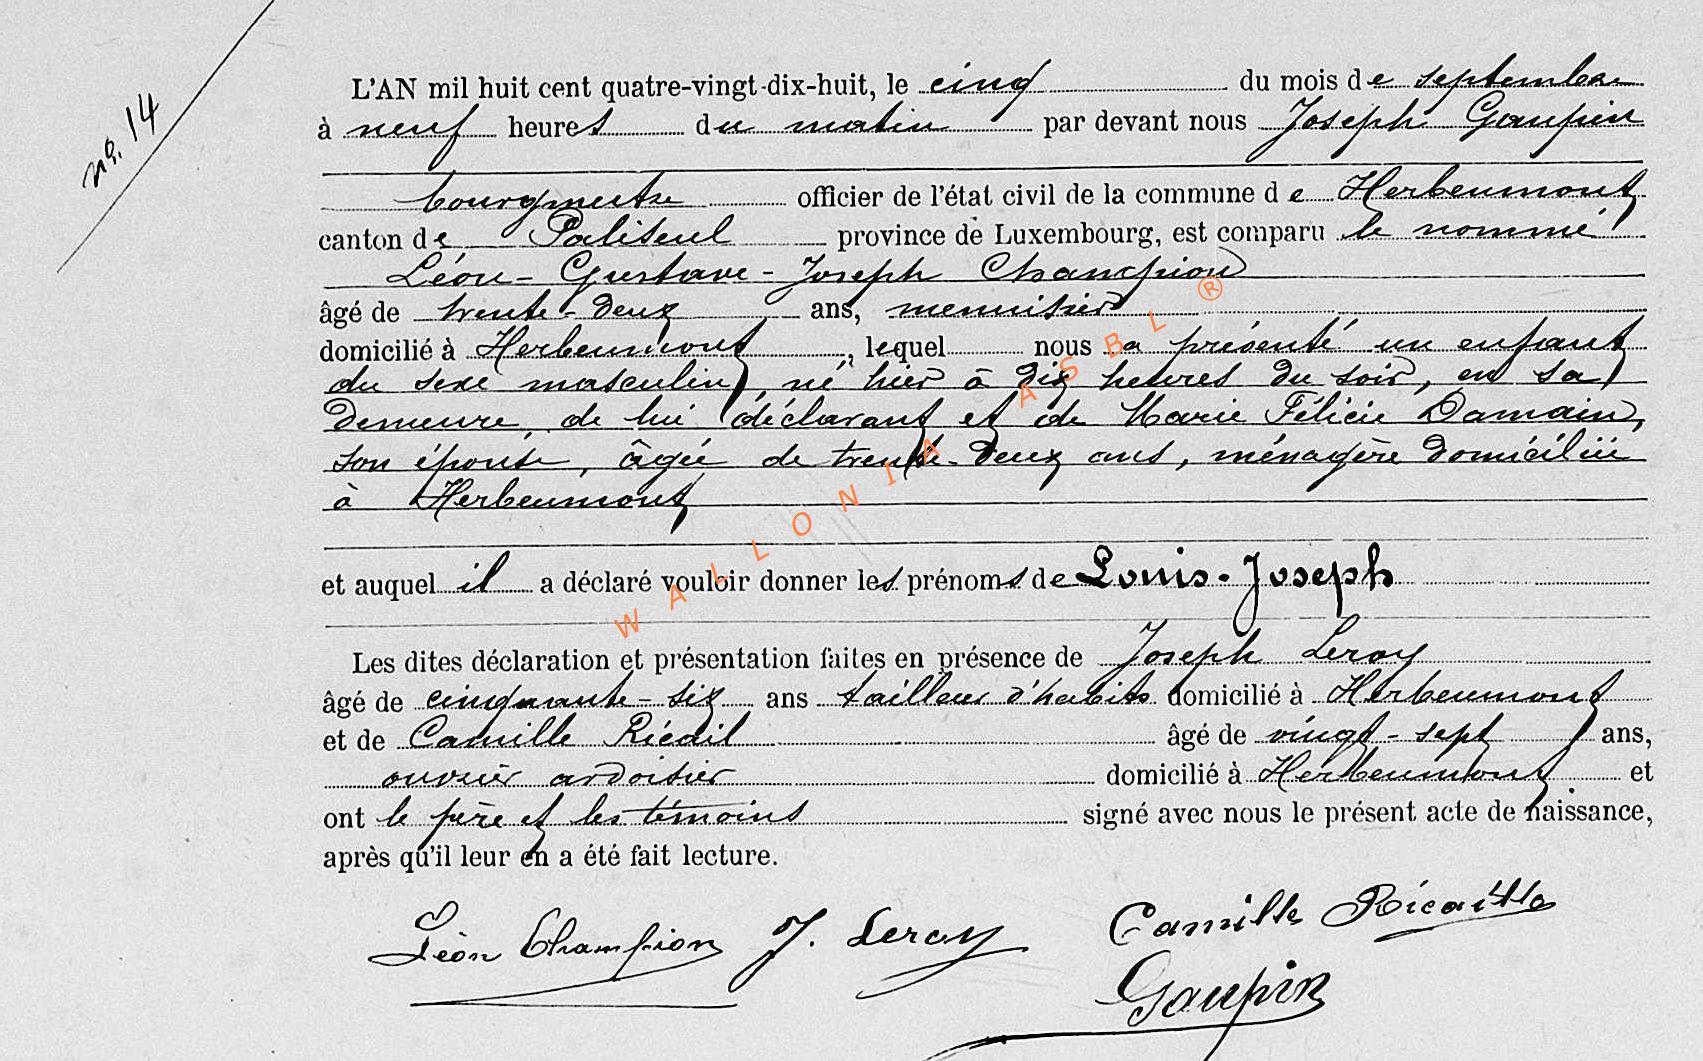 no. 14
L'AN mil huit cent quatre-vingt-dix-huit, le cinq du mois de septembre
à neuf heures du matin par devant nous Joseph Gaupin
bourgmestre officier de l'état civil de la commune de Herbeumont
canton de Paliseul province de Luxembourg, est comparu le nommé
Léon-Gustave-Joseph Champion
âgé de trente-deux ans, menuisier
domicilié à Herbeumont, lequel nous a présenté un enfant
du sexe masculin, né hier à dix heures du soir, en sa
demeure, de lui déclarant et de Marie Félicie Damain,
son épouse, âgée de trente-deux ans, ménagère domiciliée
à Herbeumont
et auquel il a déclaré vouloir donner les prénoms de Louis-Joseph
Les dites déclaration et présentation faites en présence de Joseph Leroy
âgé de cinquante-six ans tailleur d'habits domicilié à Herbeumont
et de Camille Ricail âgé de vingt-sept ans,
ouvrier ardoisier domicilié à Herbeumont et
ont le père et les témoins signé avec nous le présent acte de naissance,
après qu'il leur en a été fait lecture.
Léon Champion J. Leroy Camille Ricaille
Gaupin
WALLONIA ASBL ®